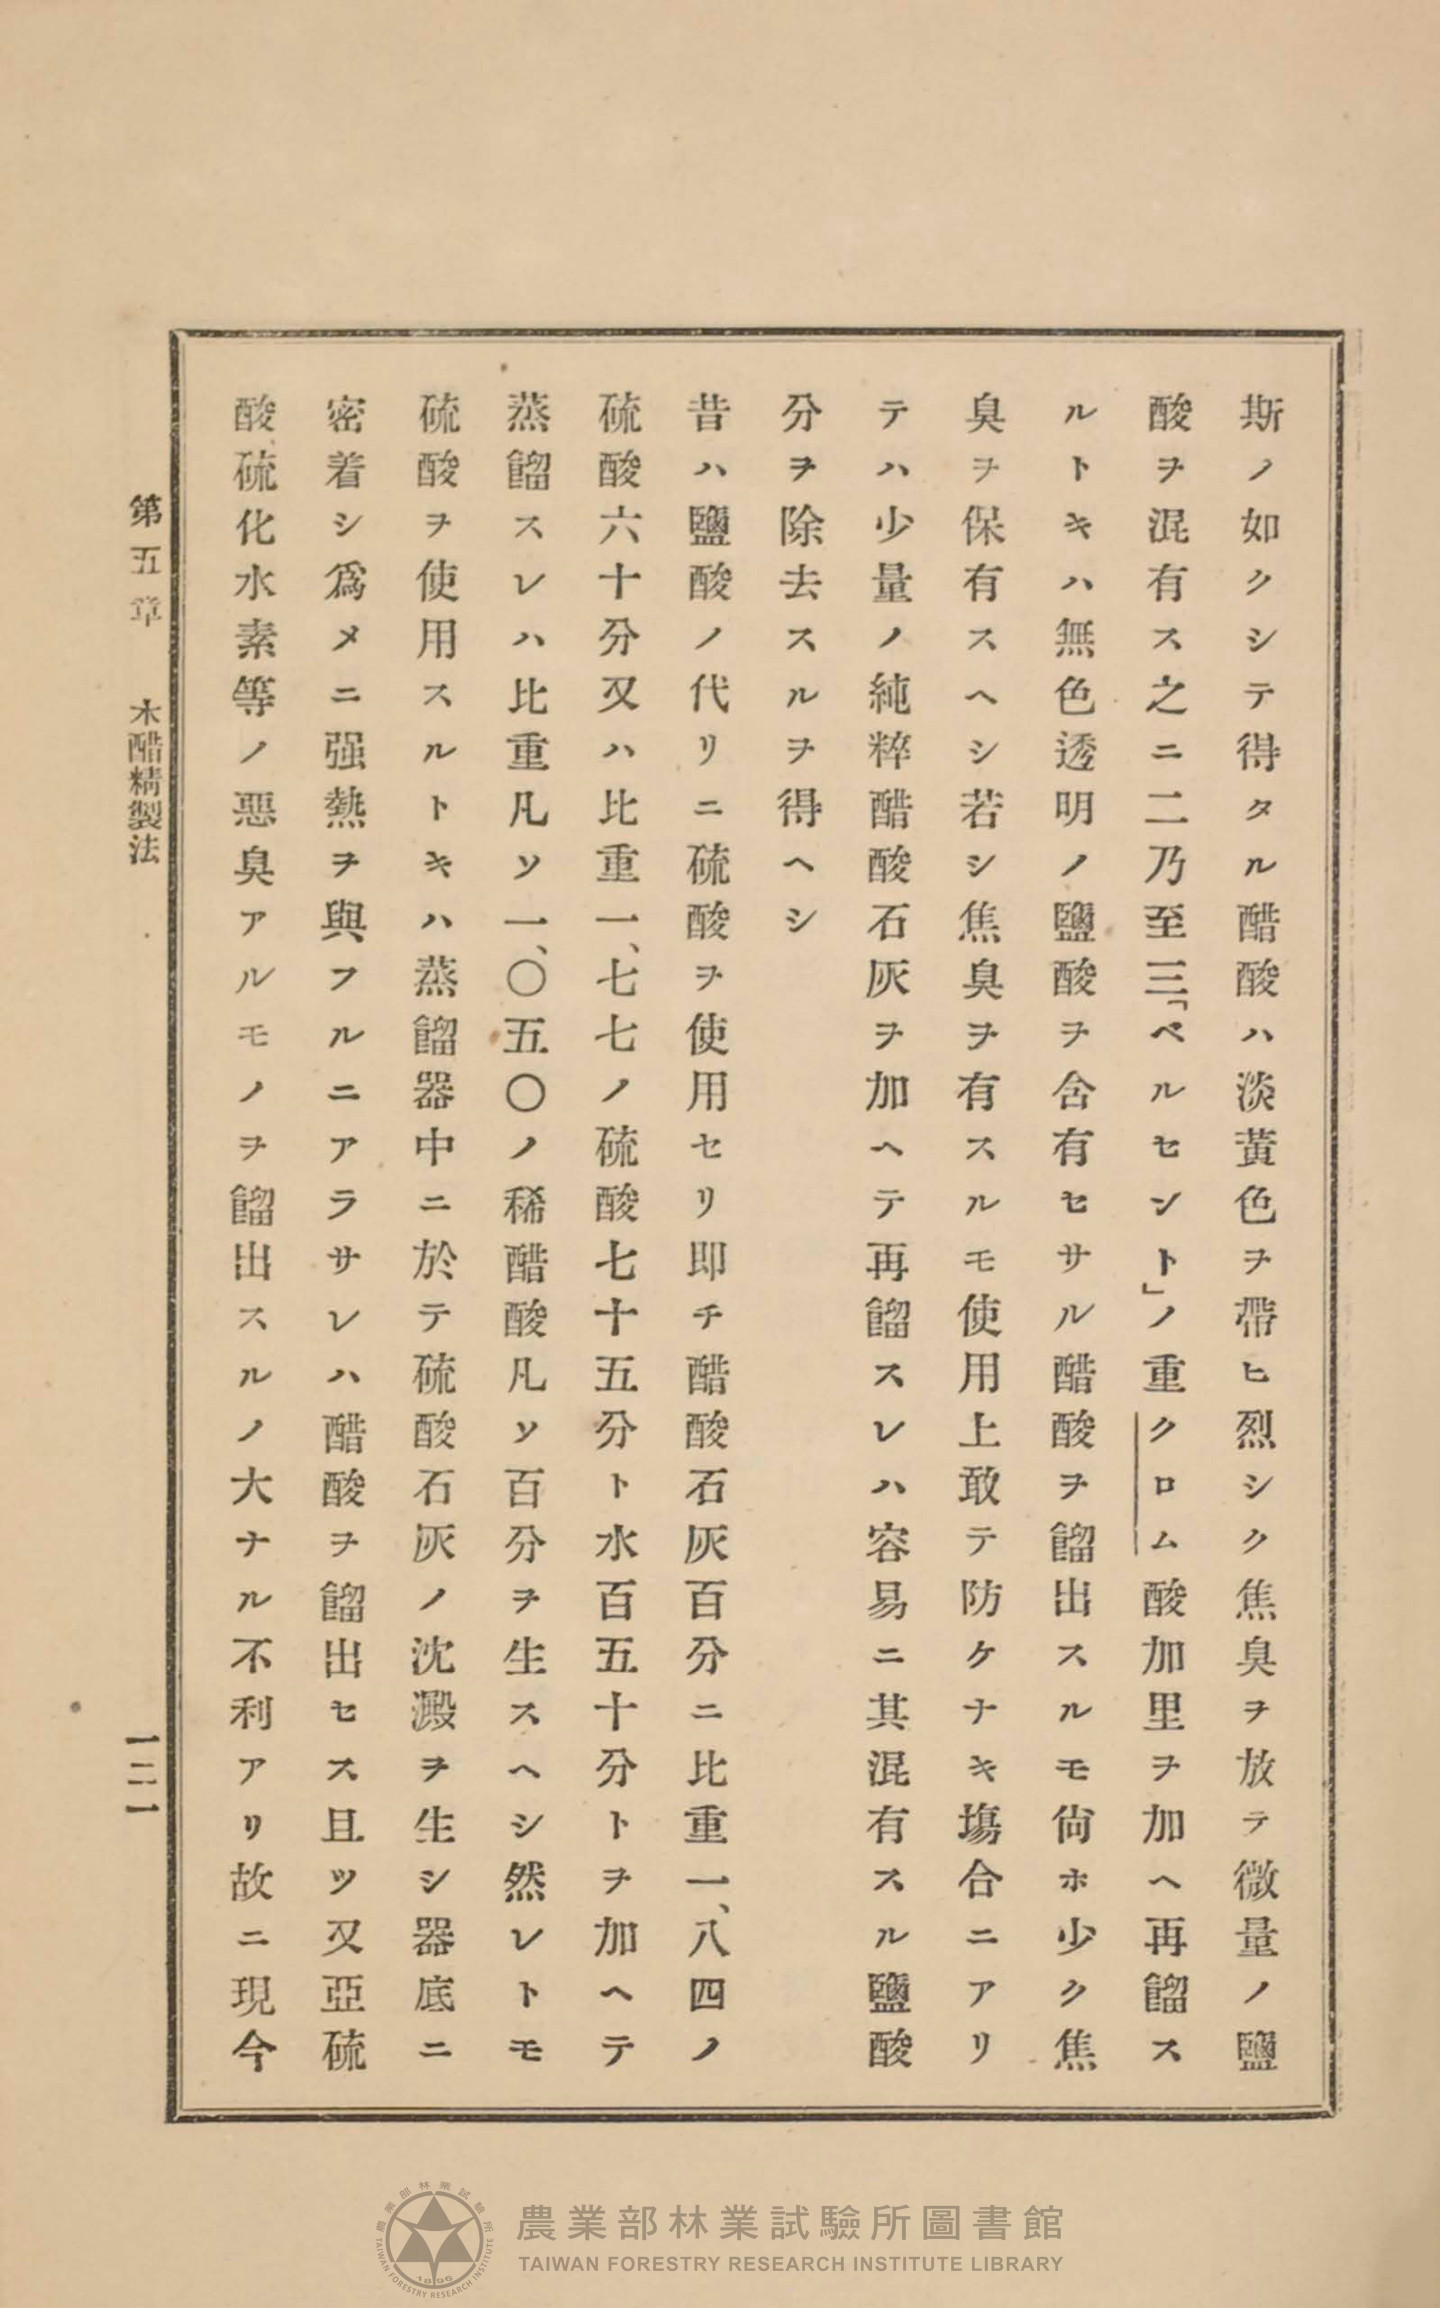 斯ノ如クシテ得タル醋酸ハ淡黃色ヲ帶ヒ烈シク焦臭ヲ放テ微量ノ鹽
酸ヲ混有ス之ニ二乃至三「ペルセント」ノ重クロム酸加里ヲ加ヘ再餾ス
ルトキハ無色透明ノ鹽酸ヲ含有セサル醋酸ヲ餾出スルモ尙ホ少ク焦
臭ヲ保有スヘシ若シ焦臭ヲ有スルモ使用上敢テ防ケナキ塲合ニアリ
テハ少量ノ純粹醋酸石灰ヲ加ヘテ再餾スレハ容易ニ其混有スル鹽酸
分ヲ除去スルヲ得ヘシ
昔ハ鹽酸ノ代リニ硫酸ヲ使用セリ卽チ醋酸石灰百分ニ比重一、八四ノ
硫酸六十分又ハ比重一、七七ノ硫酸七十五分ト水百五十分トヲ加ヘテ
蒸餾スレハ比重凡ソ一、〇五〇ノ稀醋酸凡ソ百分ヲ生スヘシ然レトモ
硫酸ヲ使用スルトキハ蒸餾器中ニ於テ硫酸石灰ノ沈澱ヲ生シ器底ニ
密着シ爲メニ强熱ヲ與フルニアラサレハ醋酸ヲ餾出セス且ツ又亞硫
酸硫化水素等ノ惡臭アルモノヲ餾出スルノ大ナル不利アリ故ニ現今
第五章 木醋精製法
一二一
農業部林業試驗所圖書館
TAIWAN FORESTRY RESEARCH INSTITUTE LIBRARY
農業部林業試驗所
TAIWAN FORESTRY RESEARCH INSTITUTE
1896